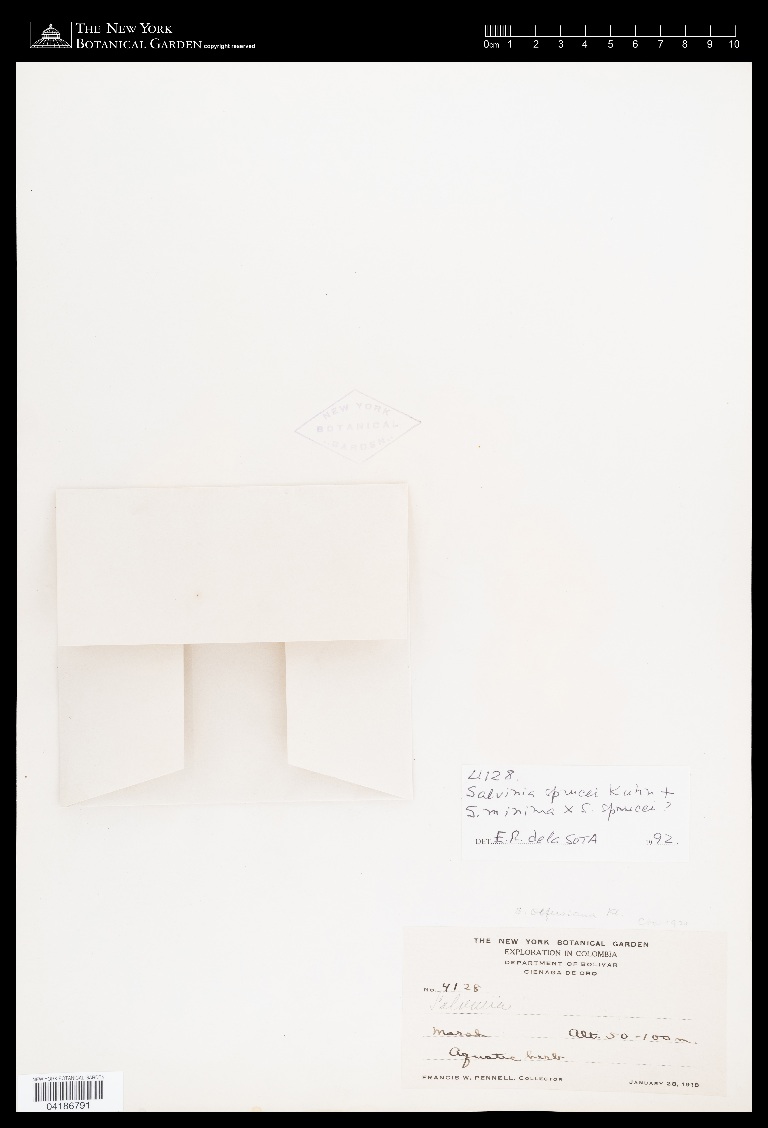 THE NEW YORK
BOTANICAL GARDEN copyright reserved
0cm 1 2 3 4 5 6 7 8 9 10
NEW YORK
BOTANICAL
GARDEN
4128.
Salvinia sprucei Kuhn +
S. minima x S. sprucei ?
DET. E.R. de la SOTA 1992.
THE NEW YORK BOTANICAL GARDEN
EXPLORATION IN COLOMBIA
DEPARTMENT OF BOLIVAR
CIENAGA DE ORO
No. 4128
Salvinia
Marsh Alt. 50-100 m.
Aquatic herb.
FRANCIS W. PENNELL, COLLECTOR JANUARY 28, 1918
NEW YORK BOTANICAL GARDEN
04186791